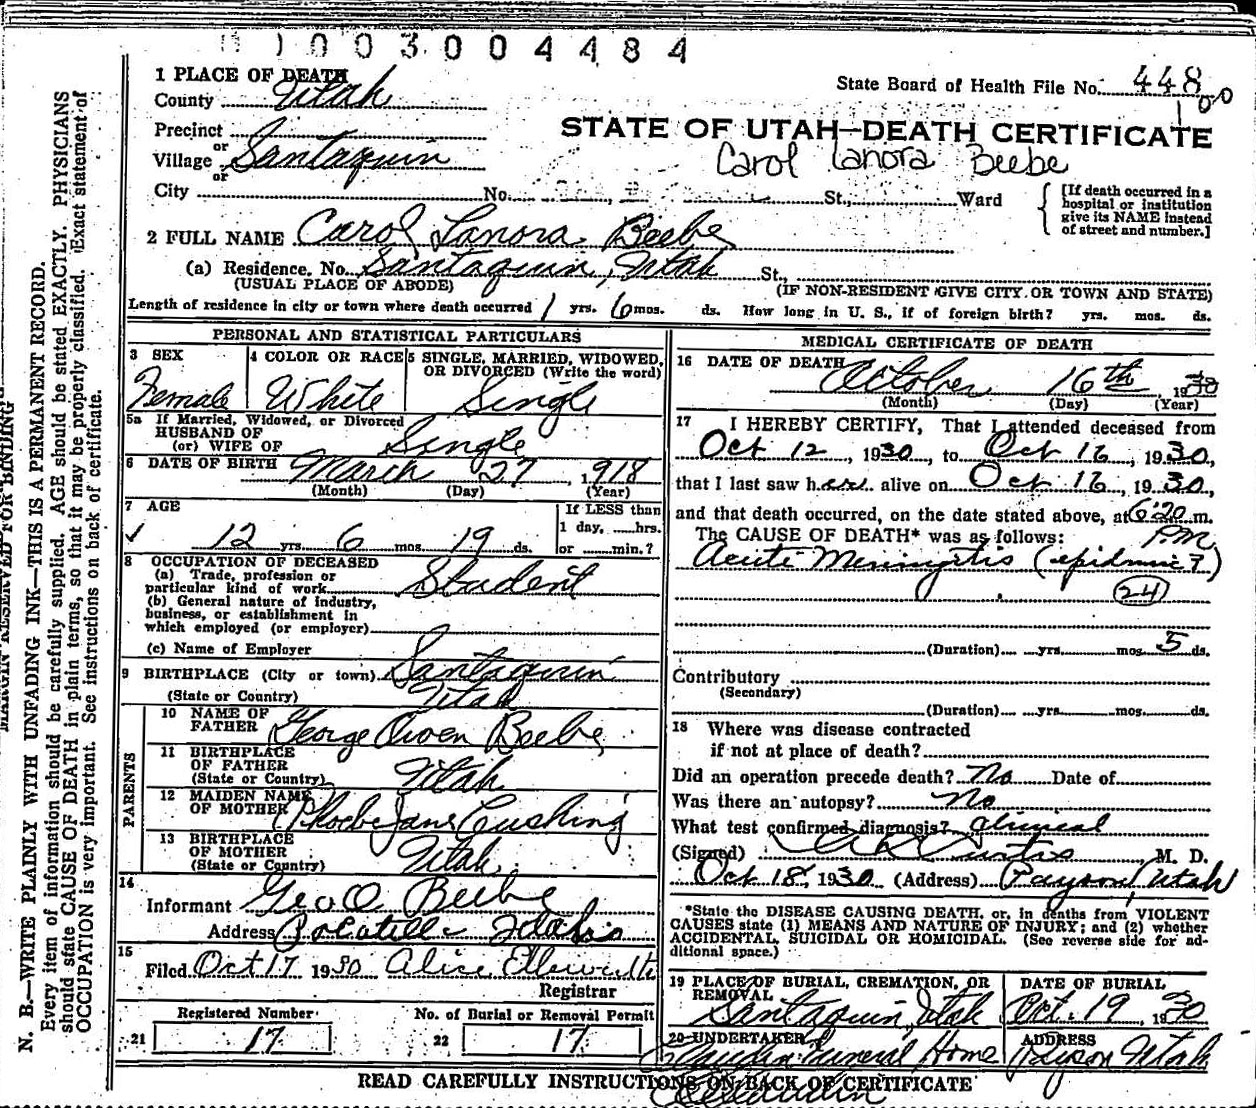 1003004484
1 PLACE OF DEATH
County Utah
State Board of Health File No. 448
100
Precinct
or
Village Santaquin
or
City No. St., Ward
STATE OF UTAH—DEATH CERTIFICATE
Carol Lanora Beebe
[If death occurred in a
hospital or institution
give its NAME instead
of street and number.]
2 FULL NAME Carol Lanora Beebe
(a) Residence. No. Santaquin, Utah St.,
(USUAL PLACE OF ABODE) (IF NON-RESIDENT GIVE CITY OR TOWN AND STATE)
Length of residence in city or town where death occurred 1 yrs. 6 mos. ds. How long in U. S., if of foreign birth? yrs. mos. ds.
PERSONAL AND STATISTICAL PARTICULARS
3 SEX 4 COLOR OR RACE 5 SINGLE, MARRIED, WIDOWED,
OR DIVORCED (Write the word)
Female White Single
5a If Married, Widowed, or Divorced
HUSBAND OF
(or) WIFE OF Single
6 DATE OF BIRTH March 27 1918
(Month) (Day) (Year)
7 AGE If LESS than
1 day, hrs.
12 yrs. 6 mos. 19 ds. or min.?
8 OCCUPATION OF DECEASED
(a) Trade, profession or
particular kind of work Student
(b) General nature of industry,
business, or establishment in
which employed (or employer)
(c) Name of Employer
9 BIRTHPLACE (City or town) Santaquin
(State or Country) Utah
PARENTS
10 NAME OF
FATHER George Owen Beebe
11 BIRTHPLACE
OF FATHER
(State or Country) Utah
12 MAIDEN NAME
OF MOTHER Phoebe Jane Cushing
13 BIRTHPLACE
OF MOTHER
(State or Country) Utah
14
Informant Geo O Beebe
Address Pocatello Idaho
15
Filed Oct 17 1930 Alice Ellsworth
Registrar
Registered Number No. of Burial or Removal Permit
21 17 22 17
MEDICAL CERTIFICATE OF DEATH
16 DATE OF DEATH
October 16th 1930
(Month) (Day) (Year)
17 I HEREBY CERTIFY, That I attended deceased from
Oct 12, 1930, to Oct 16, 1930,
that I last saw her alive on Oct 16, 1930,
and that death occurred, on the date stated above, at 6:20 m.
The CAUSE OF DEATH* was as follows: P.M.
Acute Meningitis (epidemic?)
24
(Duration) yrs. mos. 5 ds.
Contributory
(Secondary)
(Duration) yrs. mos. ds.
18 Where was disease contracted
if not at place of death?
Did an operation precede death? No Date of
Was there an autopsy? No
What test confirmed diagnosis? Clinical
(Signed) Curtis M. D.
Oct 18, 1930 (Address) Payson, Utah
*State the DISEASE CAUSING DEATH, or, in deaths from VIOLENT
CAUSES state (1) MEANS AND NATURE OF INJURY; and (2) whether
ACCIDENTAL, SUICIDAL OR HOMICIDAL. (See reverse side for ad-
ditional space.)
19 PLACE OF BURIAL, CREMATION, OR
REMOVAL
Santaquin, Utah
DATE OF BURIAL
Oct. 19, 1930
20 UNDERTAKER
Funeral Home
ADDRESS
Payson Utah
READ CAREFULLY INSTRUCTIONS ON BACK OF CERTIFICATE
MARGIN RESERVED FOR BINDING
N. B.—WRITE PLAINLY WITH UNFADING INK—THIS IS A PERMANENT RECORD.
Every item of information should be carefully supplied. AGE should be stated EXACTLY. PHYSICIANS
should state CAUSE OF DEATH in plain terms, so that it may be properly classified. Exact statement of
OCCUPATION is very important. See instructions on back of certificate.